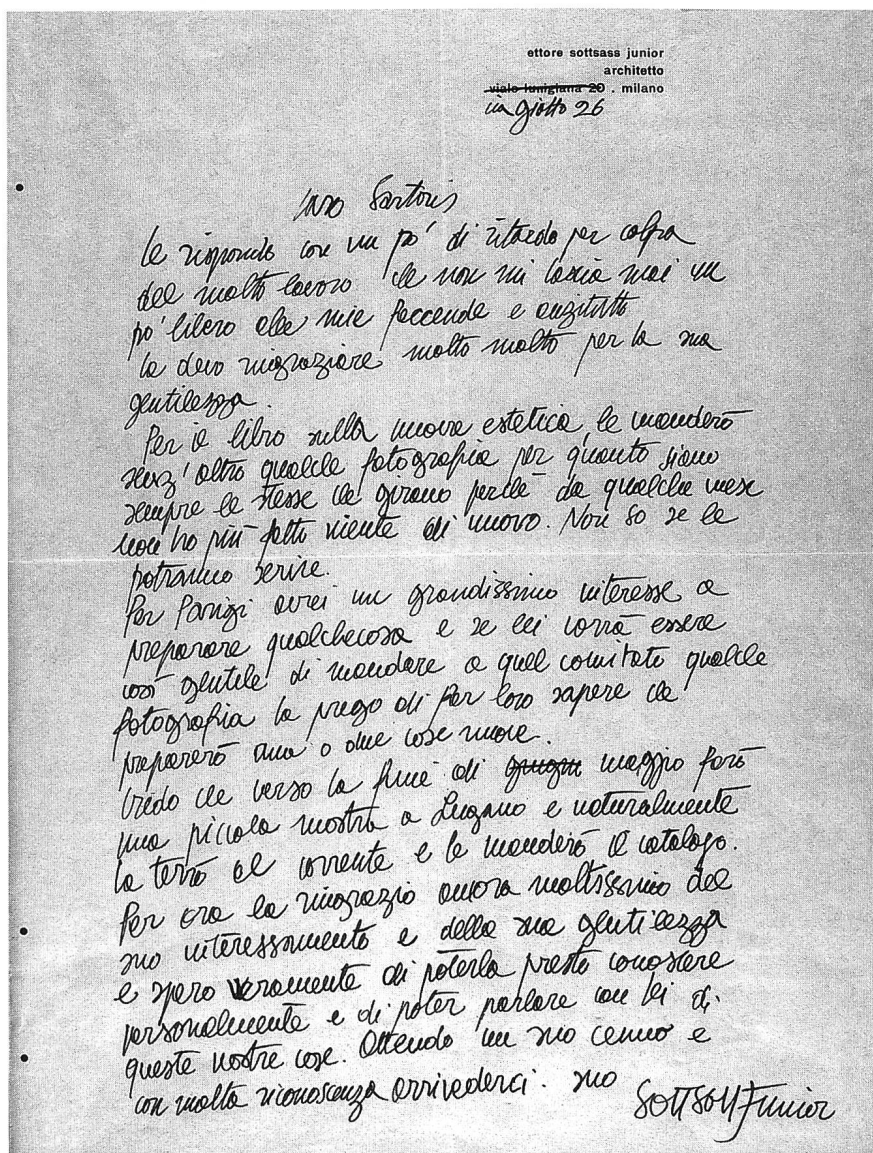 ettore sottsass junior
architetto
viale lunigiana 20 . milano
via giotto 26
Caro Sartoris
le rispondo con un po' di ritardo per colpa
del molto lavoro che non mi lascia mai un
po' libero alle mie faccende e anzitutto
la devo ringraziare molto molto per la sua
gentilezza.
Per il libro sulla nuova estetica, le manderò
senz'altro qualche fotografia per quanto siano
sempre le stesse che girano perché da qualche mese
non ho più fatto niente di nuovo. Non so se le
potranno servire.
Per Parigi avrei un grandissimo interesse a
preparare qualchecosa e se lei vorrà essere
così gentile di mandare a quel comitato qualche
fotografia la prego di far loro sapere che
preparerò una o due cose nuove.
Credo che verso la fine di giugno maggio farò
una piccola mostra a Lugano e naturalmente
la terrò al corrente e le manderò il catalogo.
Per ora la ringrazio ancora moltissimo del
suo interessamento e della sua gentilezza
e spero veramente di poterla presto conoscere
personalmente e di poter parlare con lei di
queste nostre cose. Attendo un suo cenno e
con molta riconoscenza arrivederci. suo
Sottsass Junior